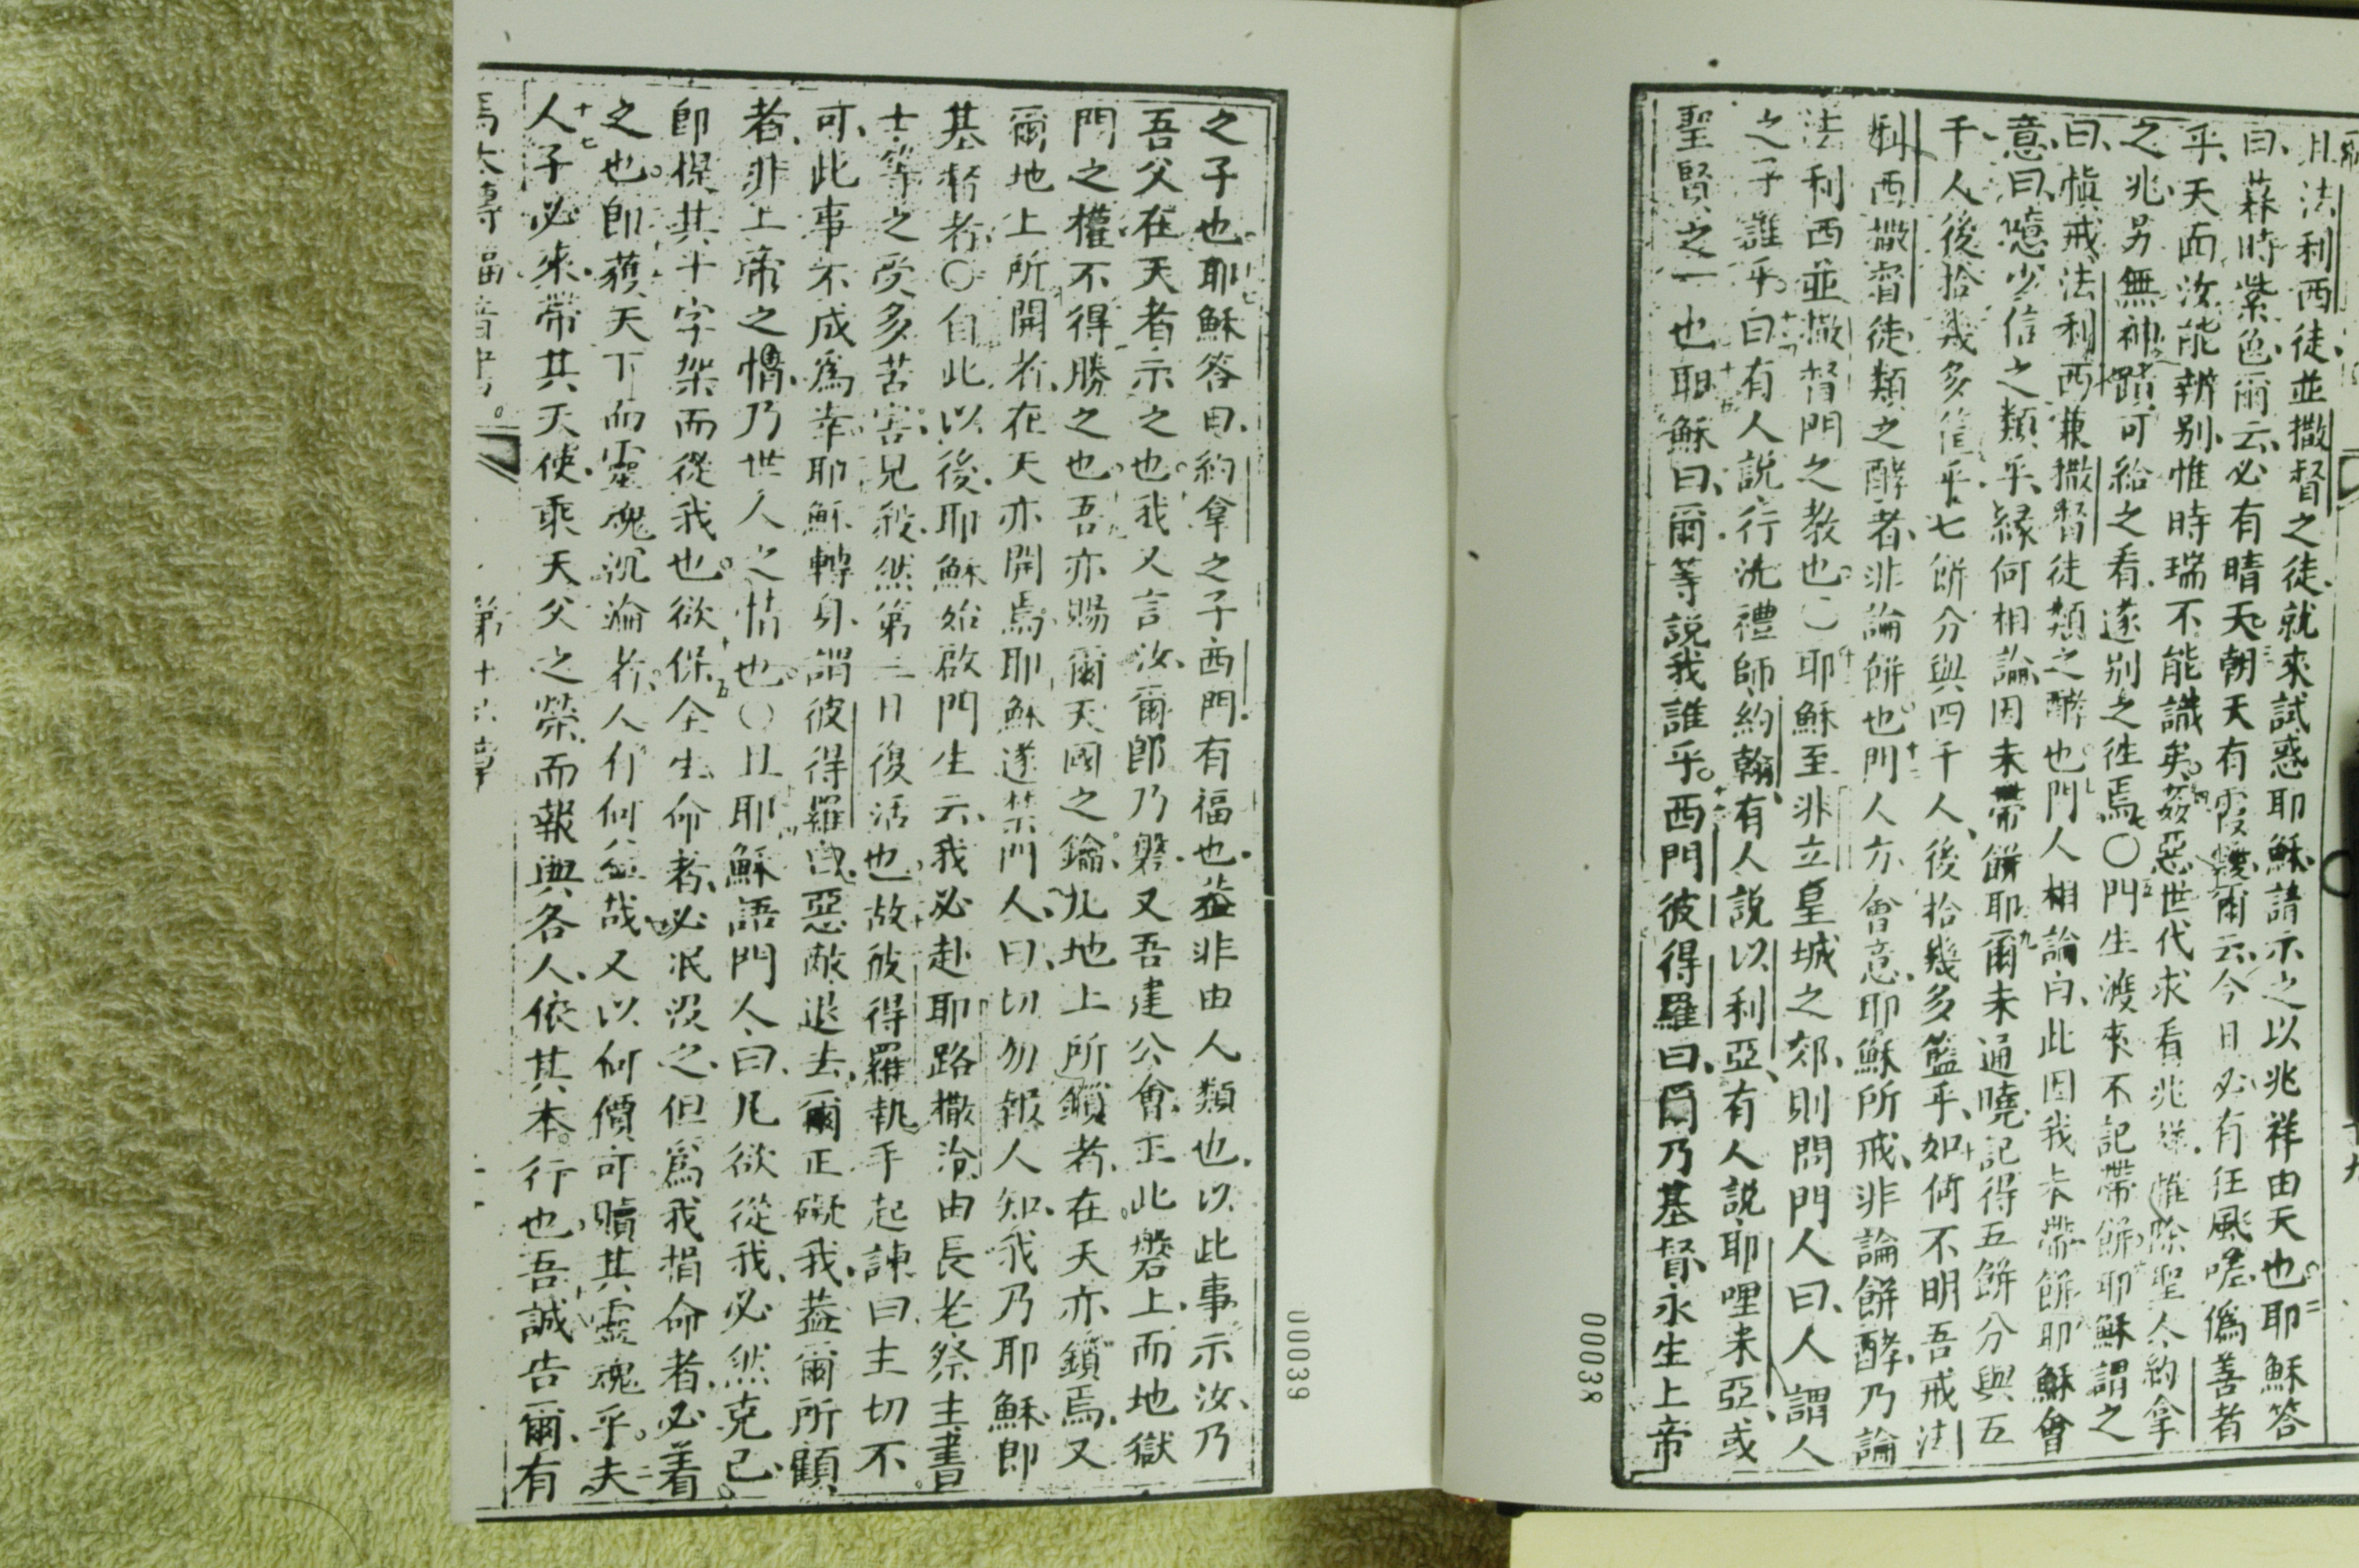 且法利西徒、並撒督之徒、就來試惑耶穌、請示之以兆祥由天也。耶穌答
曰、蓀時紫色、爾云、必有晴天。朝天有霞靉、爾云、今日必有狂風。嗟、僞善者
乎、天面汝能辨别、惟時瑞不能識矣。姦惡世代求看兆祥、惟除聖人約拿
之兆、另無神蹟可給之看。遂别之徃焉。〇門生渡來不記帶餅。耶穌謂之
曰、愼戒法利西兼撒督徒類之酵也。門人相論曰、此因我未帶餅。耶穌會
意、曰、噫少信之類乎、緣何相論因未帶餅耶。爾未通曉、記得五餅分與五
千人、後拾幾多筐乎。七餅分與四千人、後拾幾多籃乎。如何不明吾戒法
利西撒督徒類之酵者、非論餅也。門人方會意、耶穌所戒、非論餅酵、乃論
法利西並撒督門之教也。〇耶穌至非立皇城之郊、則問門人曰、人謂人
之子誰乎。曰、有人說行洗禮師約翰、有人說以利亞、有人說耶哩未亞、或
聖賢之一也。耶穌曰、爾等說我誰乎。西門彼得羅曰、爾乃基督、永生上帝
00038
之子也。耶穌答曰、約拿之子西門、有福也。葢非由人類也、以此事示汝、乃
吾父在天者示之也。我又言汝、爾卽乃磐、又吾建公會正此磐上、而地獄
門之權不得勝之也。吾亦賜爾天國之鑰、凡地上所鎖者、在天亦鎖焉、又
爾地上所開者、在天亦開焉。耶穌遂禁門人、曰、切勿報人知、我乃耶穌、卽
基督者。〇自此以後、耶穌始啟門生云、我必赴耶路撒冷、由長老祭主書
士等之受多苦害、見殺、然第三日復活也。故彼得羅執手起諫曰、主切不
可、此事不成爲幸。耶穌轉身、謂彼得羅曰、惡敵退去、爾正礙我、葢爾所顧
者、非上帝之情、乃世人之情也。〇且耶穌語門人、曰、凡欲從我、必然克己、
卽揹其十字架而從我也。欲保全生命者、必泯沒之、但爲我捐命者、必着
之也。卽獲天下而靈魂沉淪者、人有何益哉、又以何價可贖其靈魂乎。夫
人子必來、帶其天使、乘天父之榮、而報與各人、依其本行也。吾誠告爾、有
馬太傳福音書。 第十六章
00039